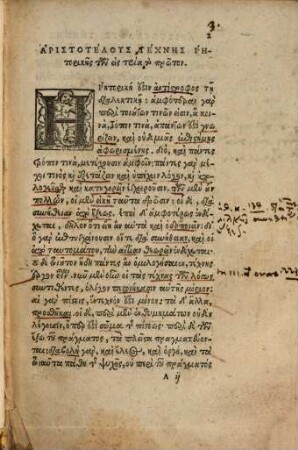 3
ΑΡΙΣΤΟΤΕΛΟΥΣ ΤΕΧΝΗΣ ΡΗ-
τορικῆς τῶν εἰς τρία τὸ πρῶτον.
Ἡ ῥητορικὴ ἐστὶν ἀντίστροφος τῇ
διαλεκτικῇ· ἀμφότεραι γὰρ
περὶ τοιούτων τινῶν εἰσιν, ἃ κοι-
νὰ τρόπον τινὰ, ἁπάντων ἐστὶ γνω-
ρίζειν, καὶ οὐδεμιᾶς ἐπιστήμης
ἀφωρισμένης. διὸ, καὶ πάντες
τρόπον τινὰ, μετέχουσιν ἀμφοῖν· πάντες γὰρ μέ-
χρι τινὸς καὶ ἐξετάζειν καὶ ὑπέχειν λόγον, καὶ ἀπο-
λογεῖσθαι καὶ κατηγορεῖν ἐγχειροῦσιν. τῶν μὲν οὖν
πολλῶν, οἱ μὲν εἰκῇ ταῦτα δρῶσιν· οἱ δὲ, διὰ
συνήθειαν ἀπὸ ἕξεως. ἐπεὶ δ' ἀμφοτέρως ἐνδέ-
χεται, δῆλον ὅτι ἂν εἴη αὐτὰ καὶ ὁδοποιεῖν· δι'
ὃ γὰρ ἐπιτυγχάνουσιν οἵ τε διὰ συνήθειαν, καὶ οἱ
ἀπὸ ταυτομάτου, τὴν αἰτίαν θεωρεῖν ἐνδέχεται.
τὸ δὲ τοιοῦτον ἤδη πάντες ἂν ὁμολογήσαιεν, τέχνης
ἔργον εἶναι. νῦν μὲν οὖν οἱ τὰς τέχνας τῶν λόγων
συντιθέντες, ὀλίγον πεποιήκασιν αὐτῆς μόριον·
αἱ γὰρ πίστεις, ἔντεχνόν ἐστι μόνον· τὰ δ' ἄλλα,
προσθῆκαι· οἱ δὲ, περὶ μὲν ἐνθυμημάτων οὐδὲν
λέγουσιν, ὅπερ ἐστὶ σῶμα τῆς πίστεως· περὶ δὲ τῶν
ἔξω τοῦ πράγματος, τὰ πλεῖστα πραγματεύον-
ται· διαβολὴ γὰρ, καὶ ἔλεος, καὶ ὀργὴ, καὶ τὰ
τοιαῦτα πάθη τῆς ψυχῆς, οὐ περὶ τοῦ πράγματός
A ij